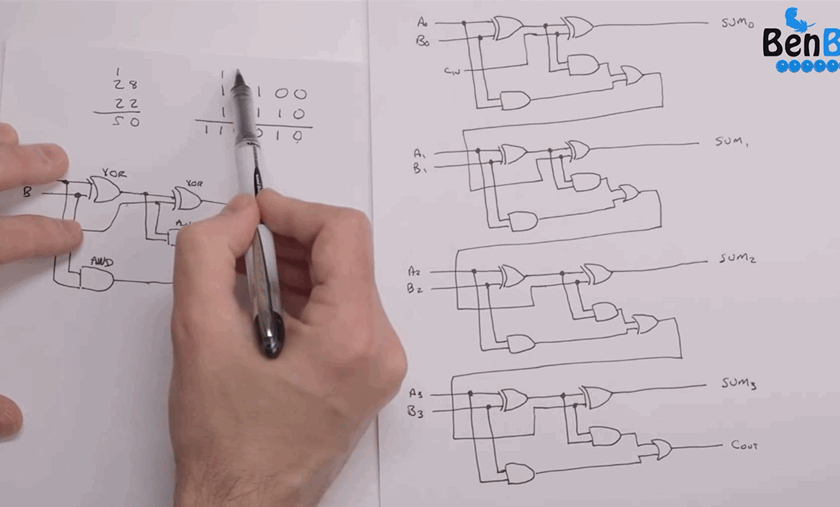 1
28
22
50
1
1 1 0 0
1 1 1 0
1 1 0 1 0
XOR
XOR
B
AND
A0
B0
CIN
SUM0
A1
B1
SUM1
A2
B2
SUM2
A3
B3
SUM3
COUT
BenB